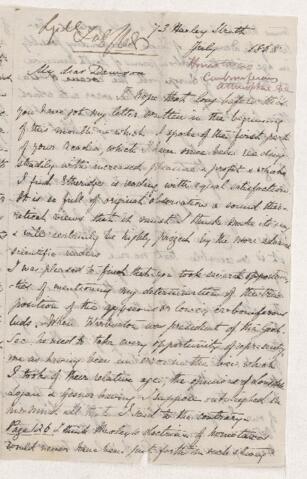 73 Harley Street
July 1868
My dear Dawson
I hope that long before this
you have got my letter written in the beginning
of this month in which I spoke of the first part
of your Acadia which I have since been reading
steadily with increased pleasure & profit & which
I find Etheridge is reading with equal satisfaction
It is so full of original observation & sound theo-
retical views that it must I think make its way
& will certainly be highly prized by the more advanced
scientific readers
I was pleased to find that you took several opportuni-
ties of mentioning my determination of the true
position of the gypsiferous lower carboniferous
beds. When Warburton was president of the Geol.
Soc. he used to take every opportunity of
me as having been in error in the view which
I took of their relative age, the opinions of
Logan & Gesner having I suppose outweighed in
his mind all that I said to the contrary
Page 126 I think Huxley's doctrine of homotaxis
would never have been put forth in such a